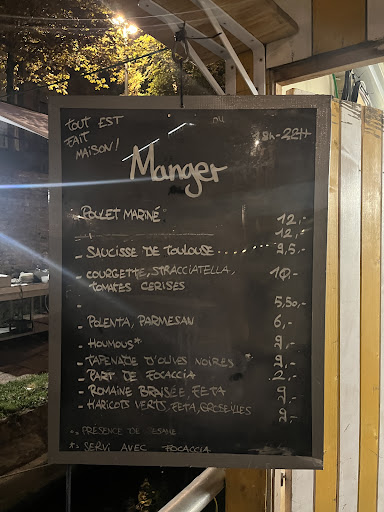 TOUT EST
FAIT
MAISON!
18H-22H
Manger
POULET MARINÉ 12,-
12,-
- SAUCISSE DE TOULOUSE..... 9,5,-
- COURGETTE, STRACCIATELLA, 10,-
TOMATES CERISES
- 5,50,-
- POLENTA, PARMESAN 6,-
- HOUMOUS* 9,-
- TAPENADE D'OLIVES NOIRES * 9,-
- PART DE FOCACCIA 2,-
- ROMAINE BRAISÉE, FETA 9,-
- HARICOTS VERTS, FETA, GROSEILLES 9,-
PRÉSENCE DE SESAME
SERVI AVEC FOCACCIA